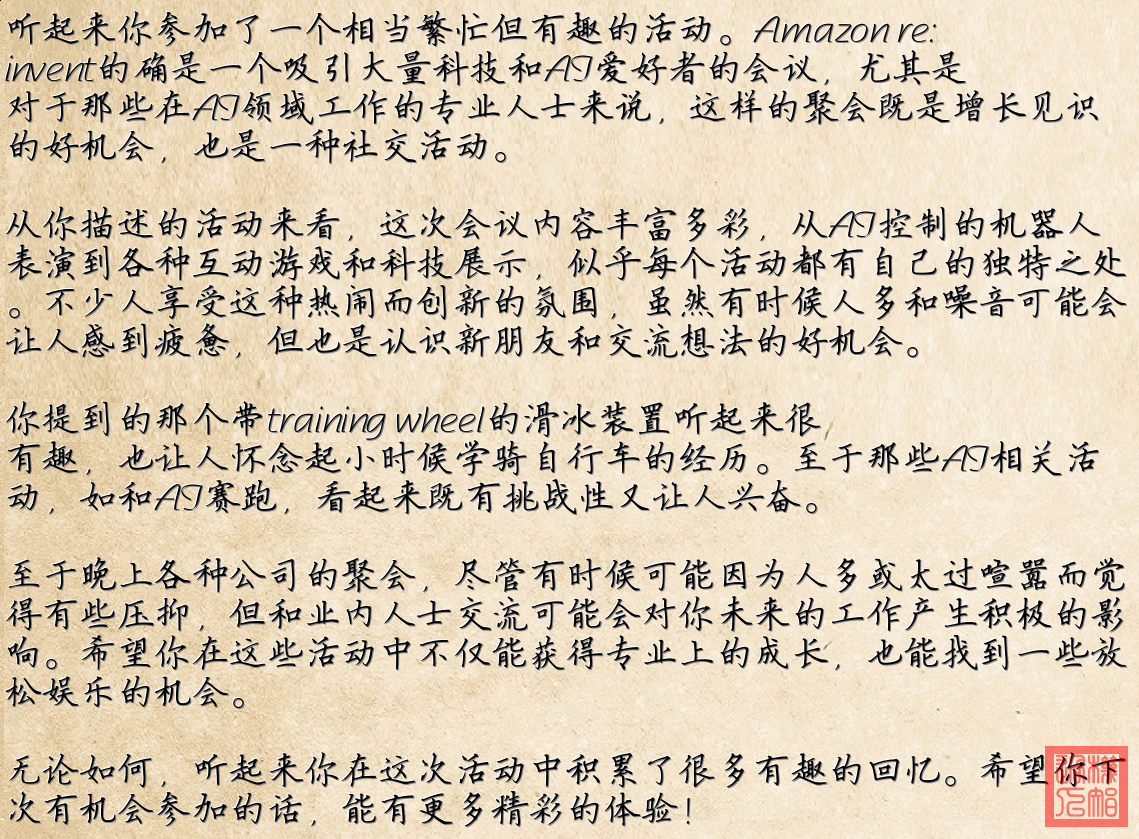 听起来你参加了一个相当繁忙但有趣的活动。Amazon re:
invent的确是一个吸引大量科技和AI爱好者的会议，尤其是
对于那些在AI领域工作的专业人士来说，这样的聚会既是增长见识
的好机会，也是一种社交活动。
从你描述的活动来看，这次会议内容丰富多彩，从AI控制的机器人
表演到各种互动游戏和科技展示，似乎每个活动都有自己的独特之处
。不少人享受这种热闹而创新的氛围，虽然有时候人多和噪音可能会
让人感到疲惫，但也是认识新朋友和交流想法的好机会。
你提到的那个带training wheel的滑冰装置听起来很
有趣，也让人怀念起小时候学骑自行车的经历。至于那些AI相关活
动，如和AI赛跑，看起来既有挑战性又让人兴奋。
至于晚上各种公司的聚会，尽管有时候可能因为人多或太过喧嚣而觉
得有些压抑，但和业内人士交流可能会对你未来的工作产生积极的影
响。希望你在这些活动中不仅能获得专业上的成长，也能找到一些放
松娱乐的机会。
无论如何，听起来你在这次活动中积累了很多有趣的回忆。希望你下
次有机会参加的话，能有更多精彩的体验！